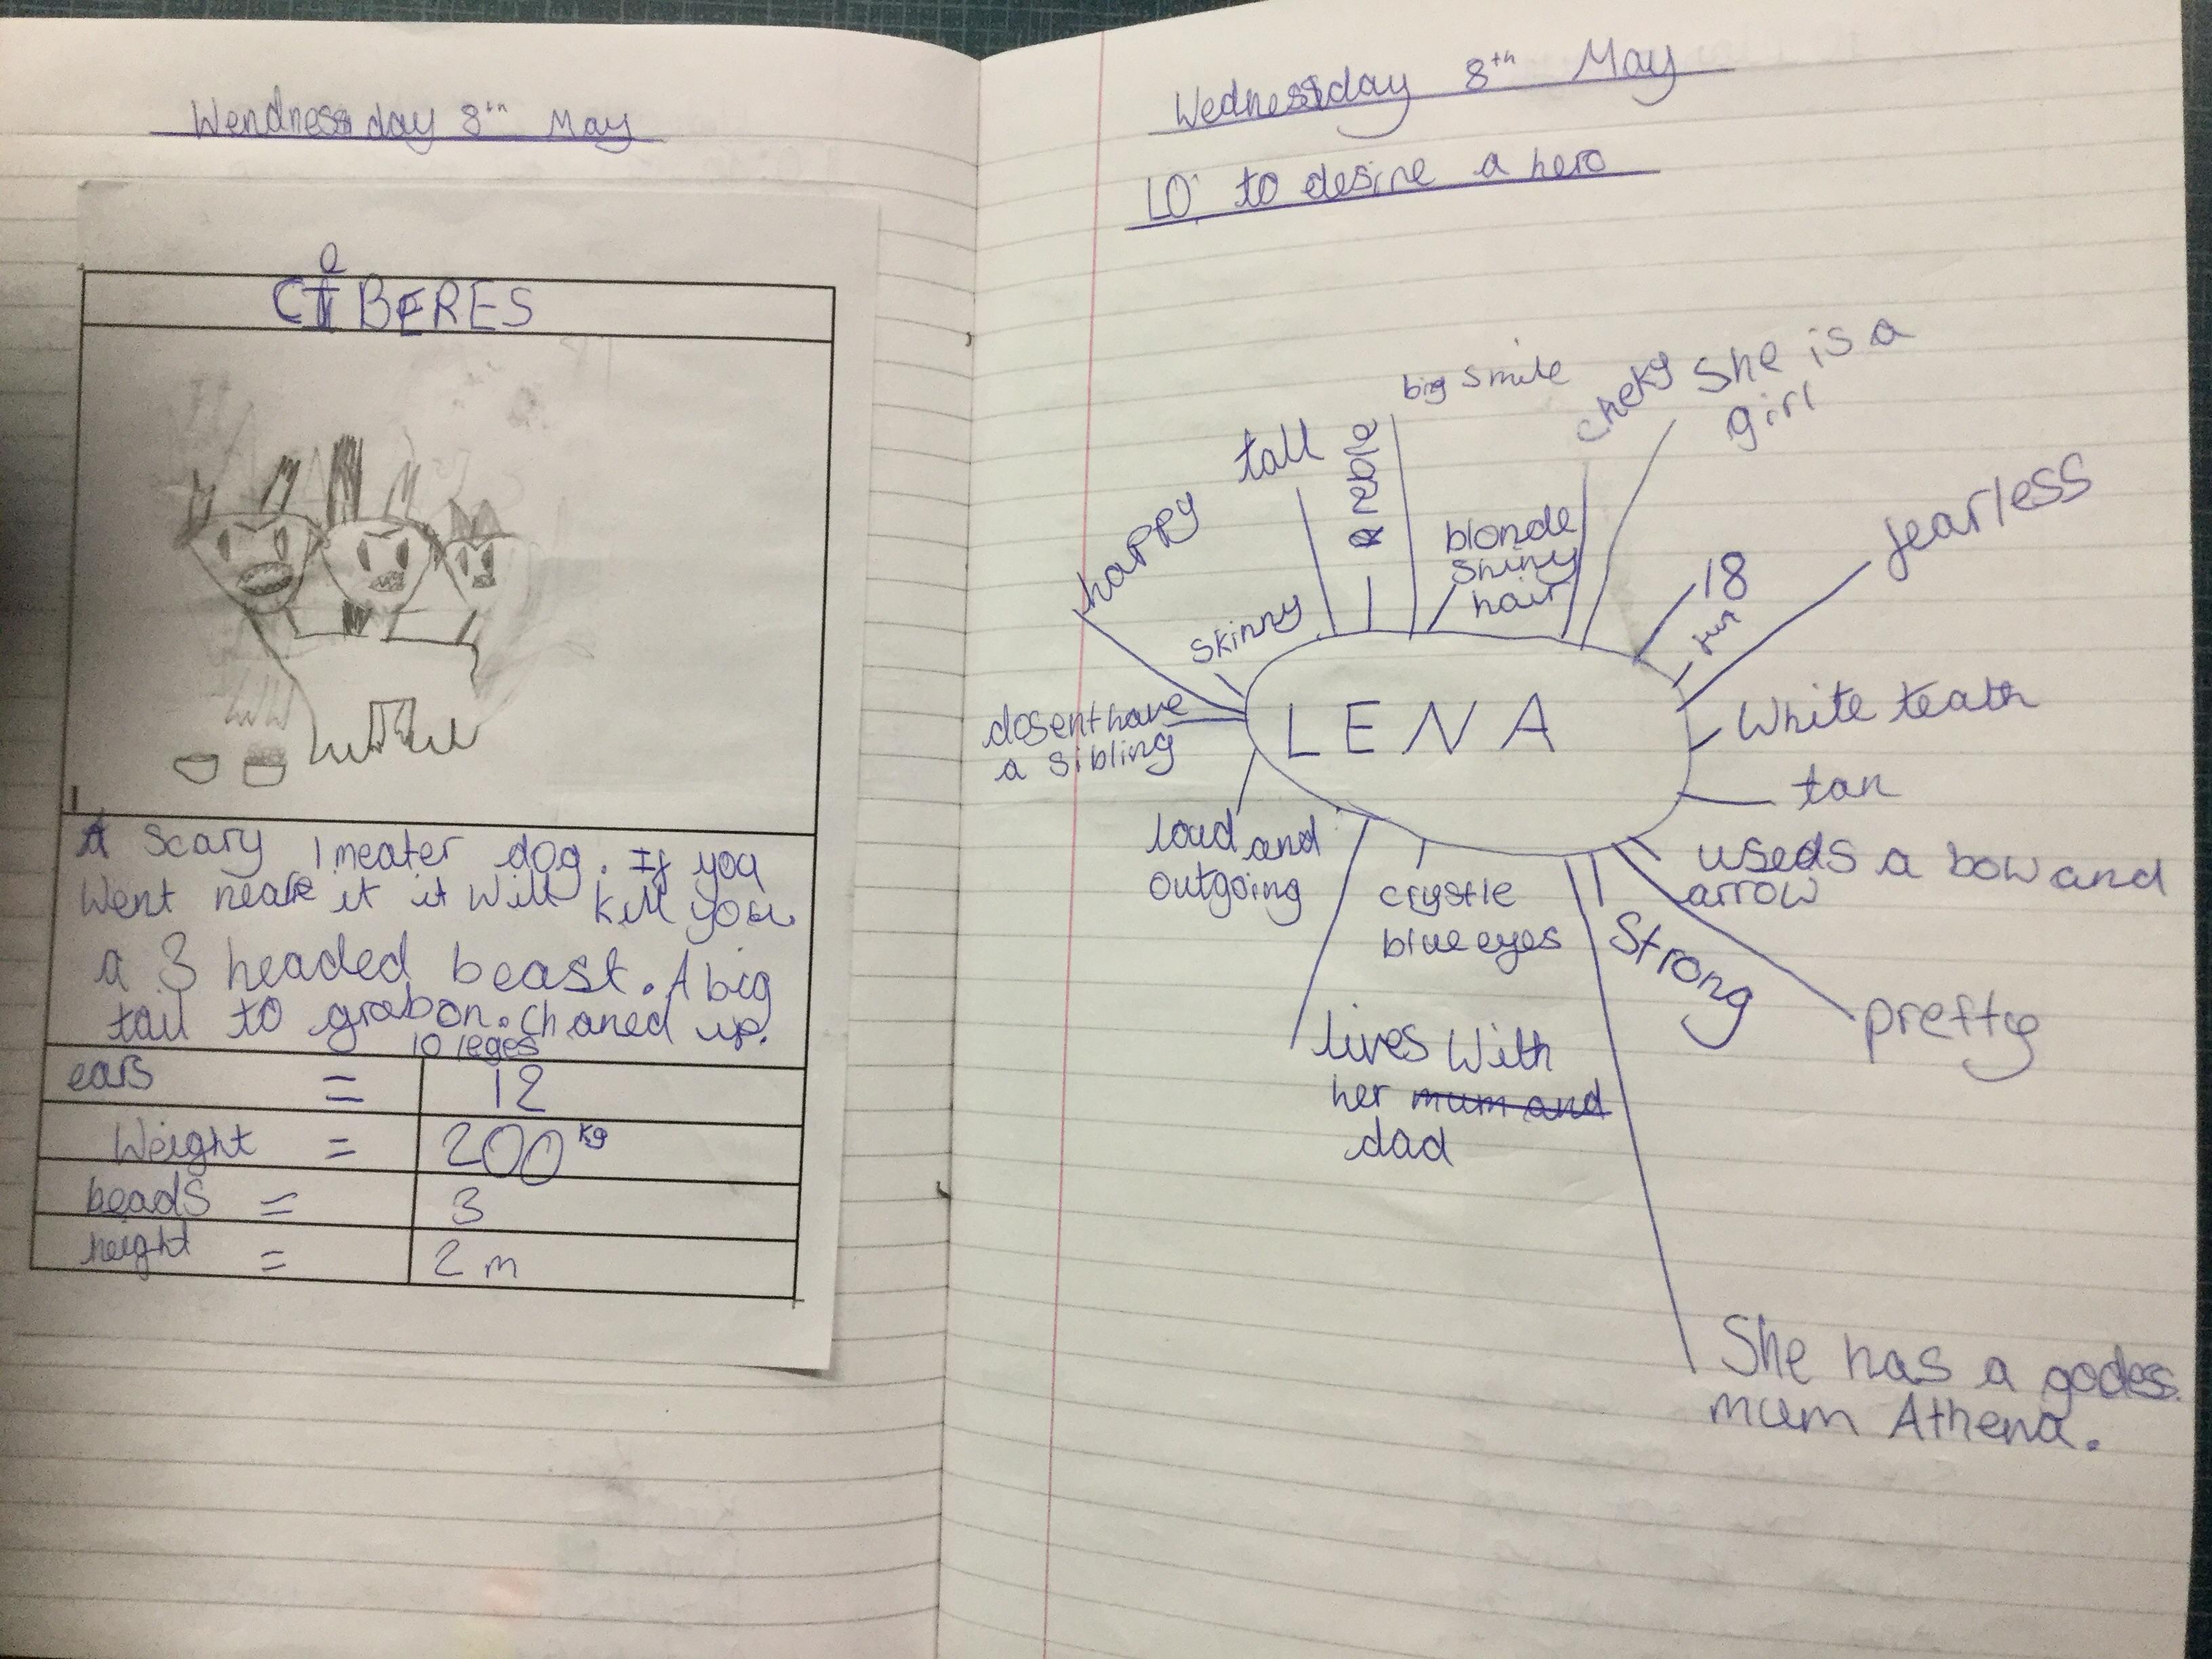 Wendnessday 8th May
CeBERES
A scary 1 meater dog. If you
Went neare it it will kill you
a 3 headed beast. A big
tail to grab on. chaned up.
10 leges
ears = 12
Weight = 200 kg
heads = 3
height = 2 m
Wednessday 8th May
LO: to desine a hero
big smile
cheky
She is a
girl
tall
happy
blonde
shiny
hair
fearless
18
fun
skinny
dosent have
a sibling
LENA
White teath
tan
loud and
outgoing
crystle
blue eyes
useds a bow and
arrow
Strong
pretty
lives With
her mum and
dad
She has a godess
mum Athena.